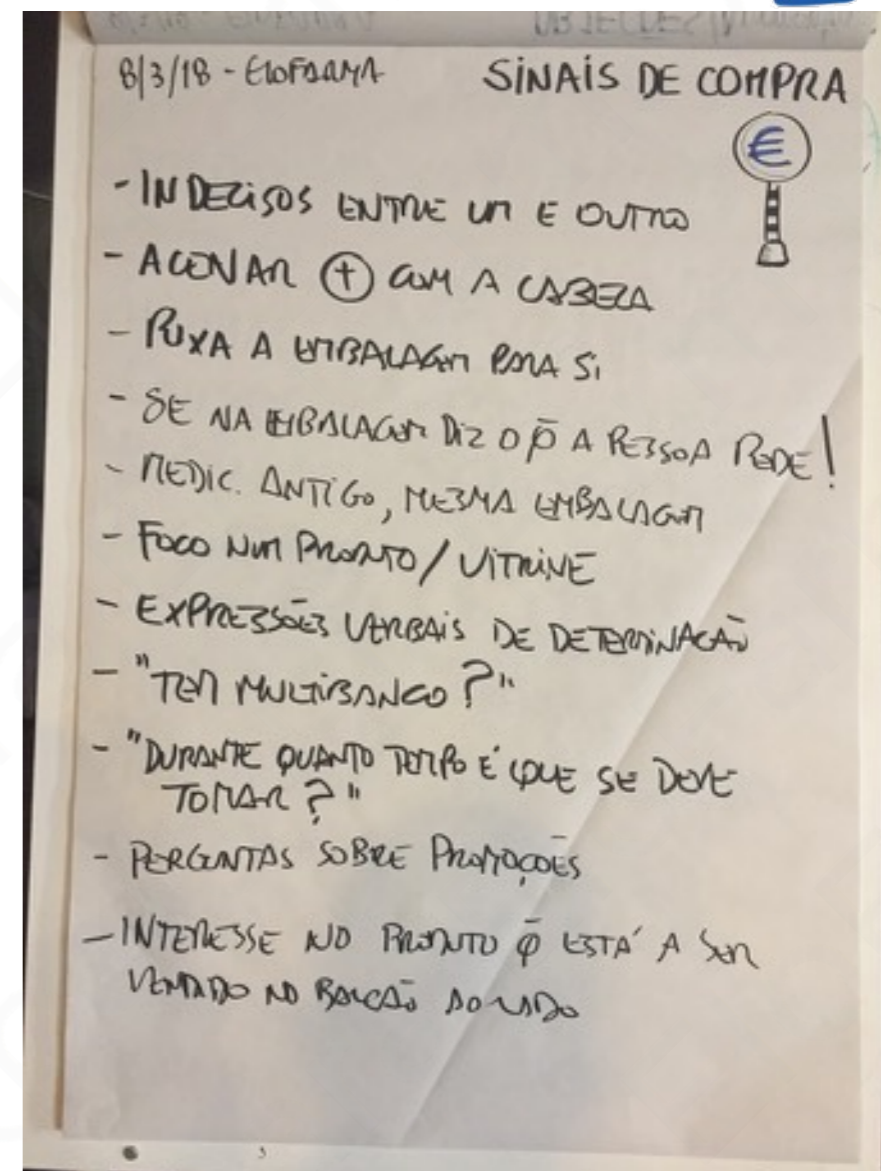 8/3/18 - ELOFARMA
SINAIS DE COMPRA
€
- INDECISOS ENTRE UM E OUTRO
- ACENAR (+) COM A CABEZA
- PUXA A EMBALAGEM PARA SI
- SE NA EMBALAGEM DIZ O Q̄ A PESSOA PEDE!
- MEDIC. ANTIGO, MESMA EMBALAGEM
- FOCO NUM PRODUTO / VITRINE
- EXPRESSÕES VERBAIS DE DETERMINAÇÃO
- "TEM MULTIBANCO?"
- "DURANTE QUANTO TEMPO É QUE SE DEVE
TOMAR?"
- PERGUNTAS SOBRE PROMOÇÕES
- INTERESSE NO PRODUTO Q̄ ESTÁ A SER
VENDIDO NO BALCÃO AO LADO